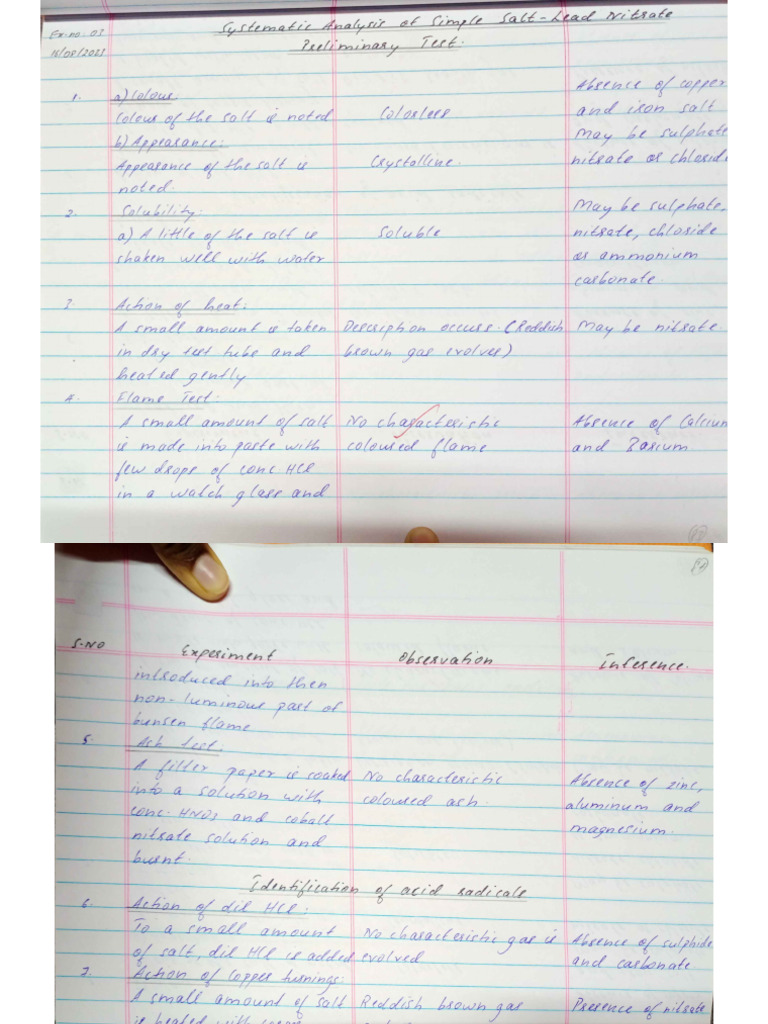 Ex.no: 03
Systematic Analysis of Simple Salt - Lead Nitrate
Preliminary Test.
1. a) Colour
Colour of the salt is noted Colorless Absence of copper and iron salt
b) Appearance:
Appearance of the salt is noted. Crystalline. May be sulphate, nitrate or chloride
2. Solubility:
a) A little of the salt is shaken well with water Soluble May be sulphate, nitrate, chloride or ammonium carbonate.
3. Action of heat:
A small amount is taken in dry test tube and heated gently Description occurs. (Reddish brown gas evolves) May be nitrate.
4. Flame Test:
A small amount of salt is made into paste with few drops of conc. HCl in a watch glass and No characteristic coloured flame Absence of Calcium and Barium
S.NO Experiment Observation Inference.
introduced into then non-luminous part of bunsen flame
5. Ash test:
A filter paper is soaked into a solution with conc. HNO3 and cobalt nitrate solution and burnt. No characteristic coloured ash. Absence of zinc, aluminum and magnesium.
Identification of acid radicals
6. Action of dil HCl:
To a small amount of salt, dil HCl is added No characteristic gas is evolved Absence of sulphide and carbonate
7. Action of Copper turnings:
A small amount of salt Reddish brown gas Presence of nitrate
is heated with